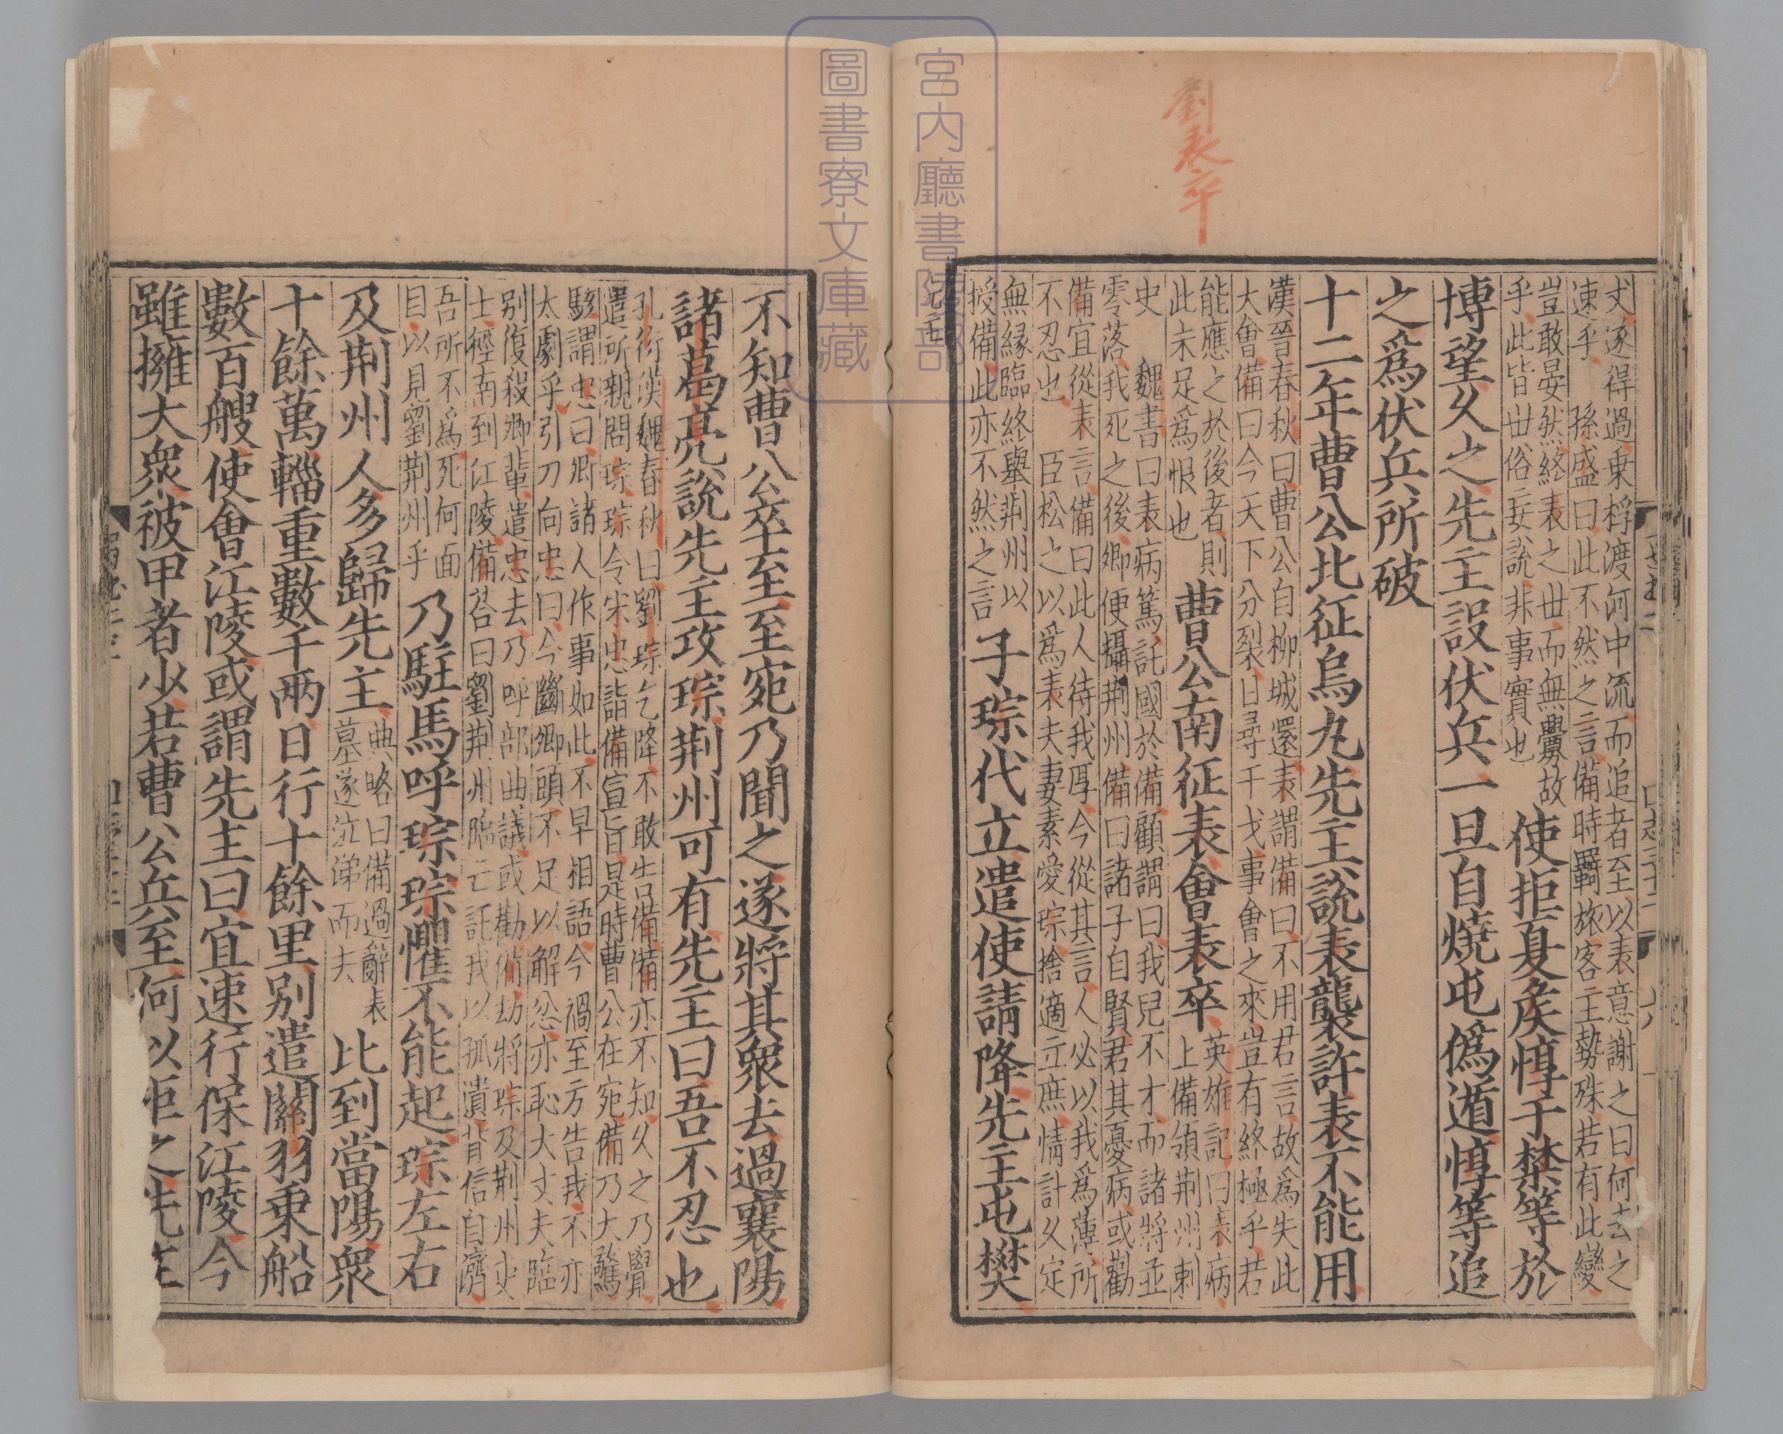 劉表卒
宮内廳書陵部
圖書寮文庫藏
丈遂得過乗桴渡河中流而追者至以表意謝之曰何去之
速乎 孫盛曰此不然之言備時羇旅客主勢殊若有此變
豈敢晏然終表之世而無釁故
乎此皆世俗妄說非事實也
使拒夏侯惇于禁等於
博望乆之先主設伏兵一旦自燒屯僞遁惇等追
之爲伏兵所破
十二年曹公北征烏丸先主說表襲許表不能用
漢晉春秋曰曹公自柳城還表謂備曰不用君言故爲失此
大會備曰今天下分裂日尋干戈事會之來豈有終極乎若
能應之於後者則
此未足爲恨也
曹公南征表會表卒
英雄記曰表病
上備領荆州刺
史 魏書曰表病篤託國於備顧謂曰我兒不才而諸將並
零落我死之後卿便攝荆州備曰諸子自賢君其憂病或勸
備宜從表言備曰此人待我厚今從其言人必以我爲薄所
不忍也 臣松之以爲表夫妻素愛琮捨適立庶情計乆定
無縁臨終舉荆州以
授備此亦不然之言
子琮代立遣使請降先主屯樊
不知曹公卒至至宛乃聞之遂將其衆去過襄陽
諸葛亮說先主攻琮荆州可有先主曰吾不忍也
孔衍漢魏春秋曰劉琮乞降不敢告備備亦不知乆之乃覺
遣所親問琮琮令宋忠詣備宣旨是時曹公在宛備乃大驚
駭謂忠曰卿諸人作事如此不早相語今禍至方告我不亦
太劇乎引刀向忠曰今斷卿頭不足以解忿亦恥大丈夫臨
別復殺卿輩遣忠去乃呼部曲議或勸備劫將琮及荆州吏
士徑南到江陵備荅曰劉荆州臨亡託我以孤遺背信自濟
吾所不爲死何面
目以見劉荆州乎
乃駐馬呼琮琮懼不能起琮左右
及荆州人多歸先主
典略曰備過辭表
墓遂涕泣而夫
比到當陽衆
十餘萬輜重數千兩日行十餘里別遣關羽乗船
數百艘使會江陵或謂先主曰宜速行保江陵今
雖擁大衆被甲者少若曹公兵至何以拒之先主